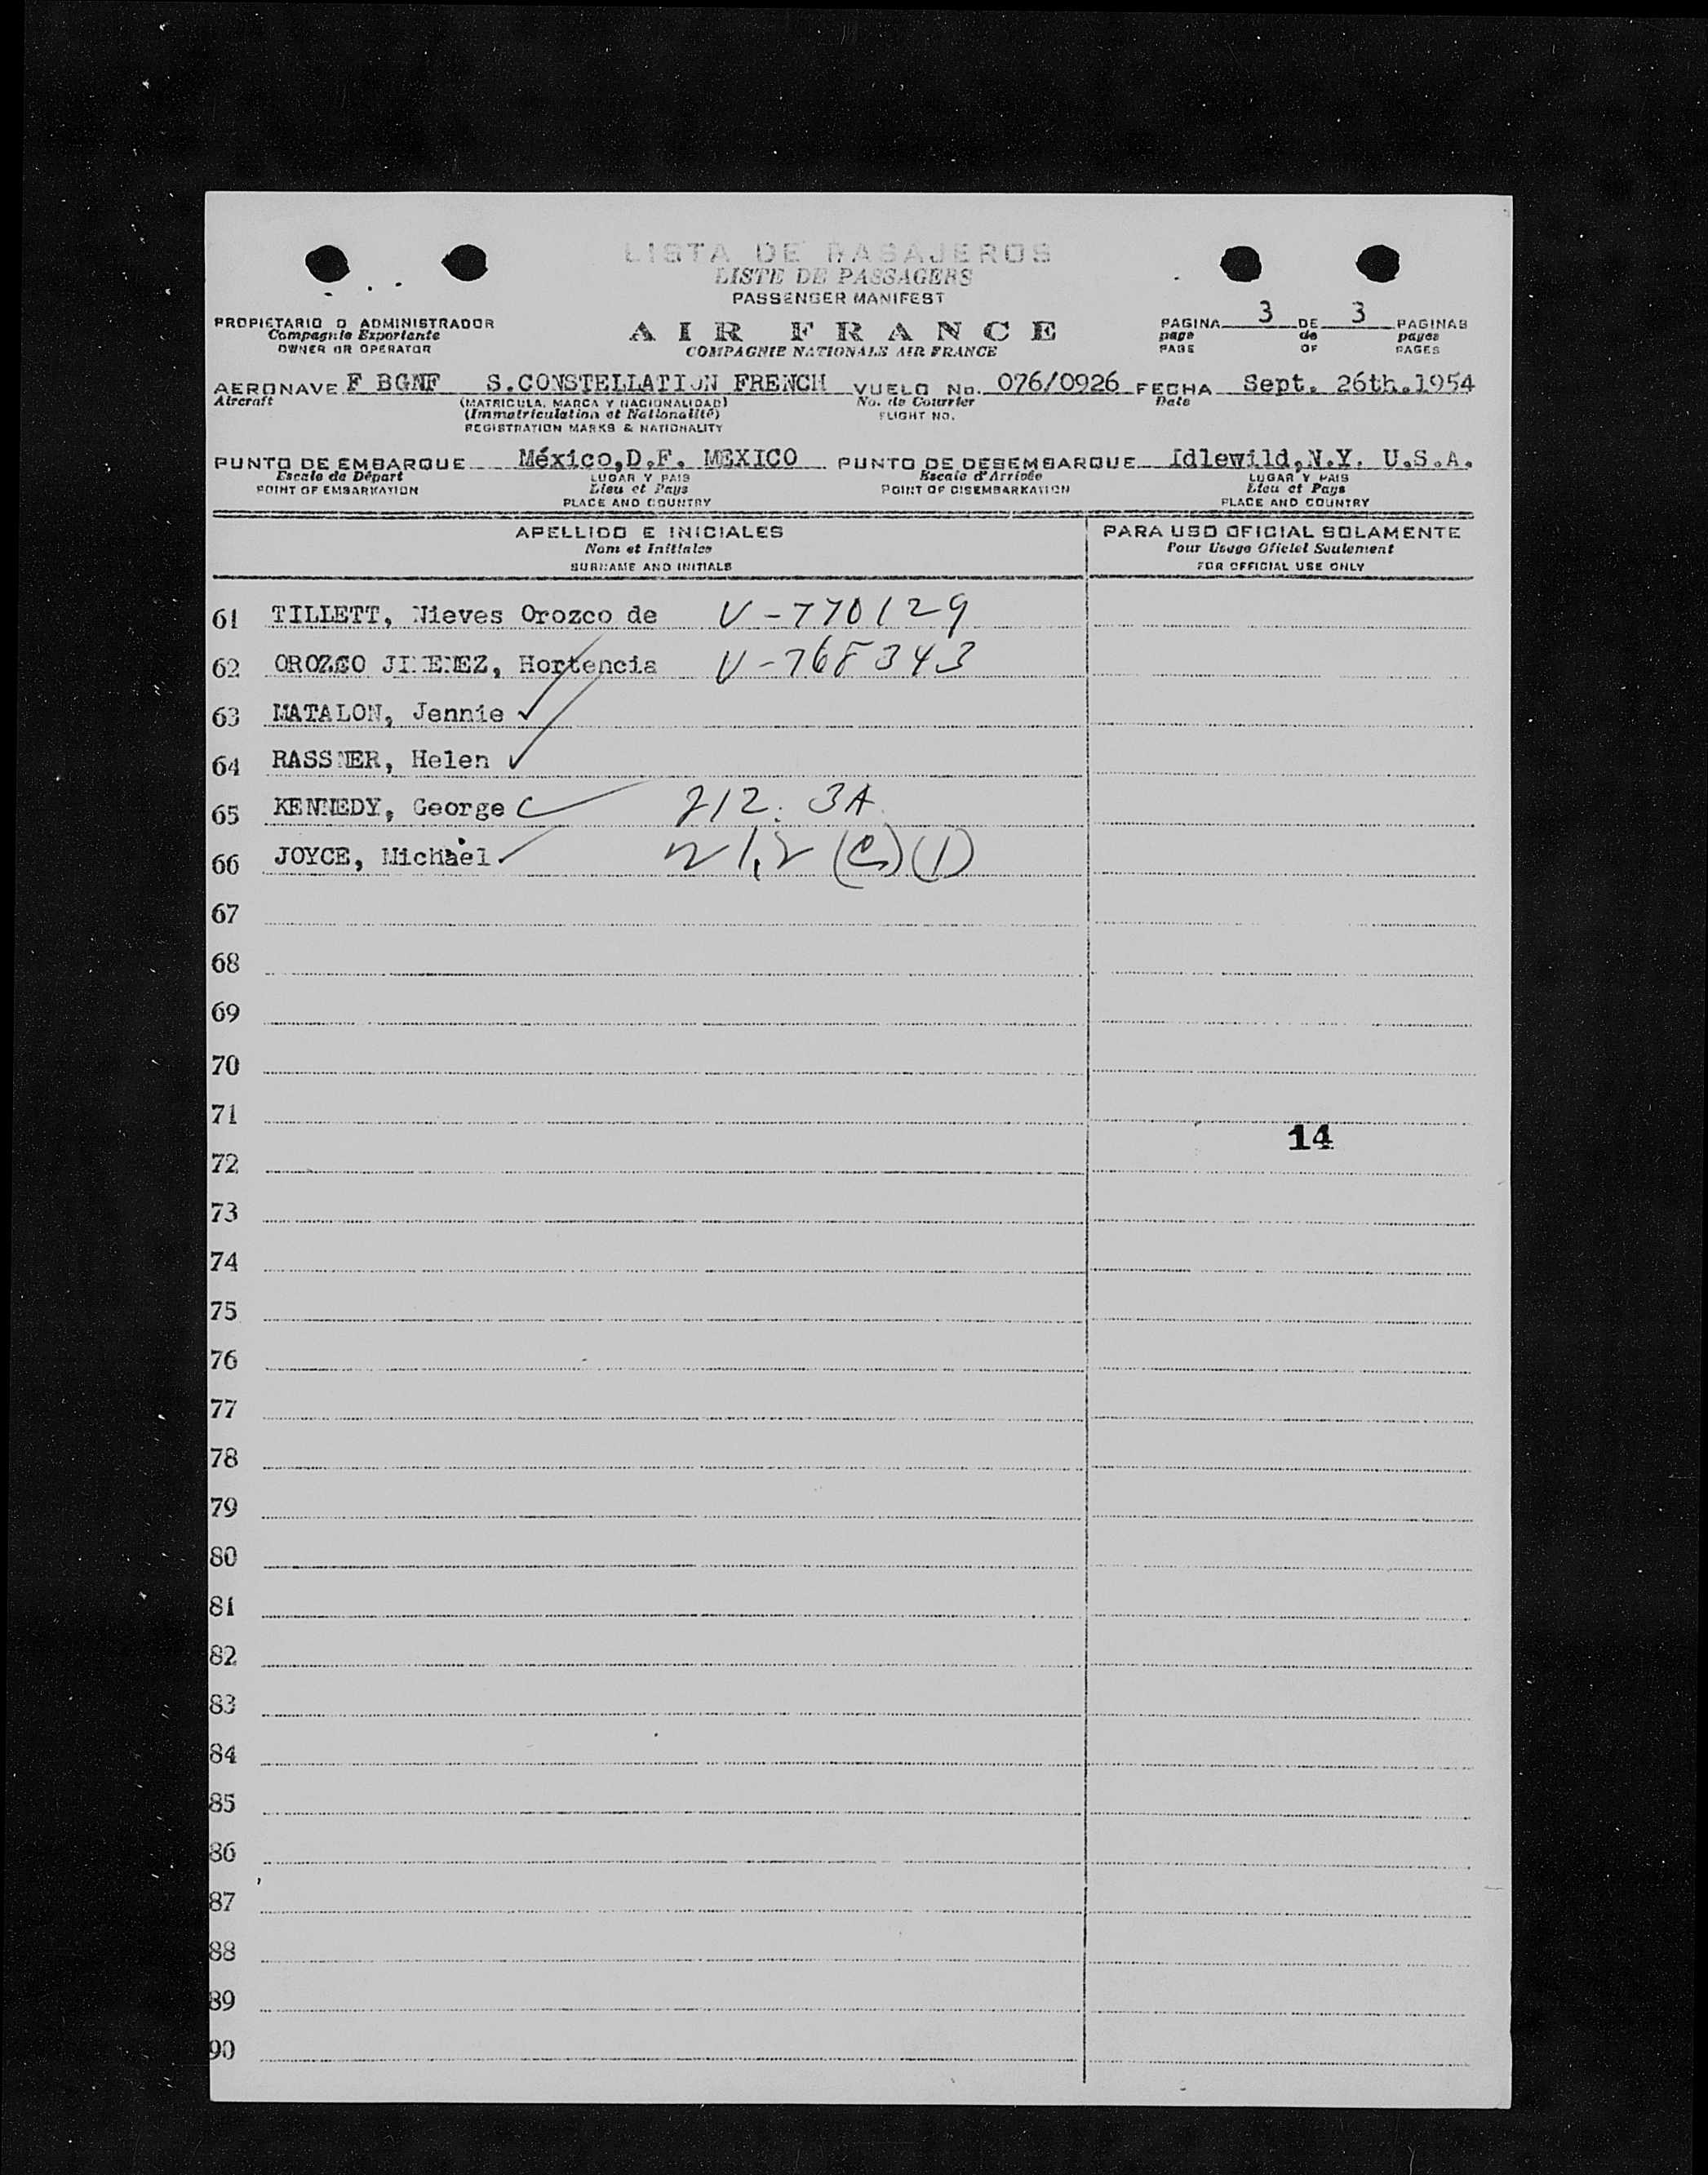 LISTA DE PASAJEROS
LISTE DE PASSAGERS
PASSENGER MANIFEST
AIR FRANCE
COMPAGNIE NATIONALE AIR FRANCE
PROPIETARIO O ADMINISTRADOR
Compagnie Exportante
OWNER OR OPERATOR
PAGINA 3 DE 3 PAGINAS
page de pages
PAGE OF PAGES
AERONAVE F BGNF S.CONSTELLATION FRENCH VUELO No. 076/0926 FECHA Sept. 26th.1954
Aircraft (MATRICULA, MARCA Y NACIONALIDAD) No. de Courrier Date
(Immatriculation et Nationalité) FLIGHT NO.
REGISTRATION MARKS & NATIONALITY
PUNTO DE EMBARQUE México,D.F. MEXICO PUNTO DE DESEMBARQUE Idlewild,N.Y. U.S.A.
Escale de Départ LUGAR Y PAIS Escale d'Arrivée LUGAR Y PAIS
POINT OF EMBARKATION Lieu et Pays POINT OF DISEMBARKATION Lieu et Pays
PLACE AND COUNTRY PLACE AND COUNTRY
APELLIDO E INICIALES PARA USO OFICIAL SOLAMENTE
Nom et Initiales Pour Usage Oficiel Seulement
SURNAME AND INITIALS FOR OFFICIAL USE ONLY
61 TILLETT, Nieves Orozco de V-770129
62 OROZCO JIMENEZ, Hortencia V-768343
63 MATALON, Jennie
64 RASSNER, Helen
65 KENNEDY, George 212. 3A
66 JOYCE, Michael
67
68
69
70
71
14
72
73
74
75
76
77
78
79
80
81
82
83
84
85
86
87
88
89
90